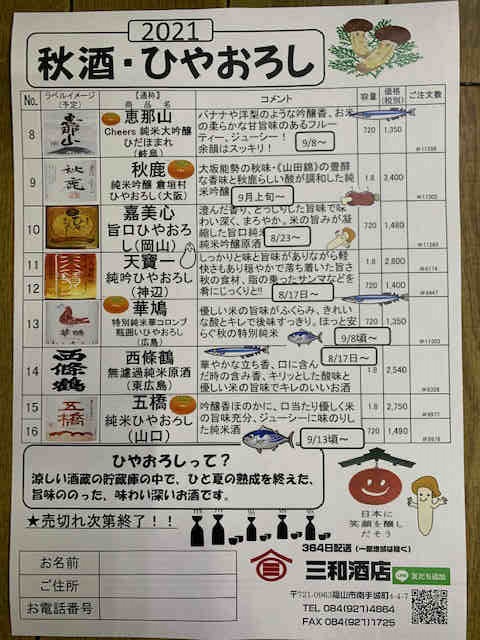 2021
秋酒・ひやおろし
No. ラベルイメージ(予定) 【通称】商品名 コメント 容量 価格(税別) ご注文数
8 恵那山
Cheers 純米大吟醸
ひだほまれ
(岐阜)
バナナや洋梨のような吟醸香、お米
の柔らかな甘旨味のあるフルー
ティー、ジューシー！
余韻はスッキリ！
9/8～
720 1,350
9 秋鹿
純米吟醸 倉垣村
ひやおろし(大阪)
大阪能勢の秋味・《山田錦》の豊醇
な香味と秋鹿らしい酸が調和した純
米吟醸
9月上旬～
1.8 2,400
10 嘉美心
旨口ひやおろ
し(岡山)
澄んだ香り、どっしりした旨味で味
わい深く、まろやか。米の旨みが凝
縮した旨口純米
純米吟醸原酒
8/23～
720 1,480
11
12
天寶一
純吟ひやおろし
(神辺)
しっかりと味と旨味がありながら軽
快さもあり穏やかで落ち着いた旨さ
秋の食材、脂の乗ったサンマなどを
肴にじっくりと!!
8/17日～
1.8 2,800
720 1,400
13 華鳩
特別純米華コロンブ
瓶囲いひやおろし
(広島)
優しい米の旨味がふくらみ、きれい
な酸とキレで後味すっきり。ほっと安
らぐ秋の特別純米
9/8頃～
720 1,350
14 西條鶴
無濾過純米原酒
(東広島)
8/17日～
華やかな立ち香、口に含ん
だ時の含み香、キリッとした酸味と
優しい米の旨味でキレのいいお酒
1.8 2,540
15
16
五橋
純米ひやおろし
(山口)
吟醸香ほのかに、口当たり優しく米
の旨味充分、ジューシーに味のりし
た純米酒
9/13頃～
1.8 2,750
720 1,490
ひやおろしって？
涼しい酒蔵の貯蔵庫の中で、ひと夏の熟成を終えた、
旨味ののった、味わい深いお酒です。
日本に
笑顔を醸し
だそう
★売切れ次第終了！！
お名前
ご住所
お電話番号
364日配送(一部地域は除く)
三和酒店
LINE 友だち追加
〒721-0963福山市南手城町4-4-7
TEL 084(921)4864
FAX 084(921)1725